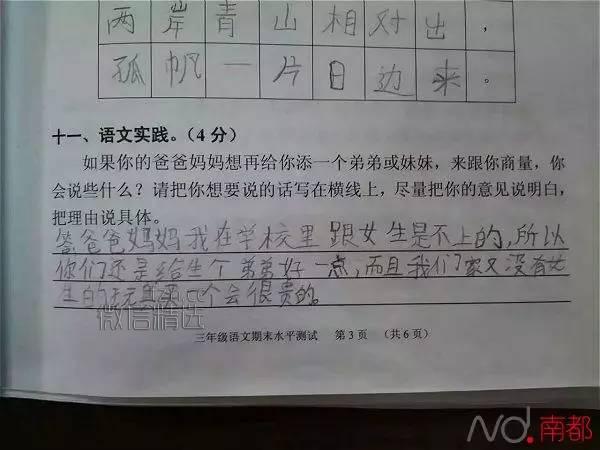 两岸青山相对出，
孤帆一片日边来。
十一、语文实践。（4分）
如果你的爸爸妈妈想再给你添一个弟弟或妹妹，来跟你商量，你
会说些什么？请把你想要说的话写在横线上，尽量把你的意见说明白，
把理由说具体。
答爸爸妈妈我在学校里跟女生是不上的，所以
你们还是给生个弟弟好一点，而且我们家又没有女
生的玩具买一个会很贵的。
微信精选
三年级语文期末水平测试 第3页 （共6页）
nd.南都